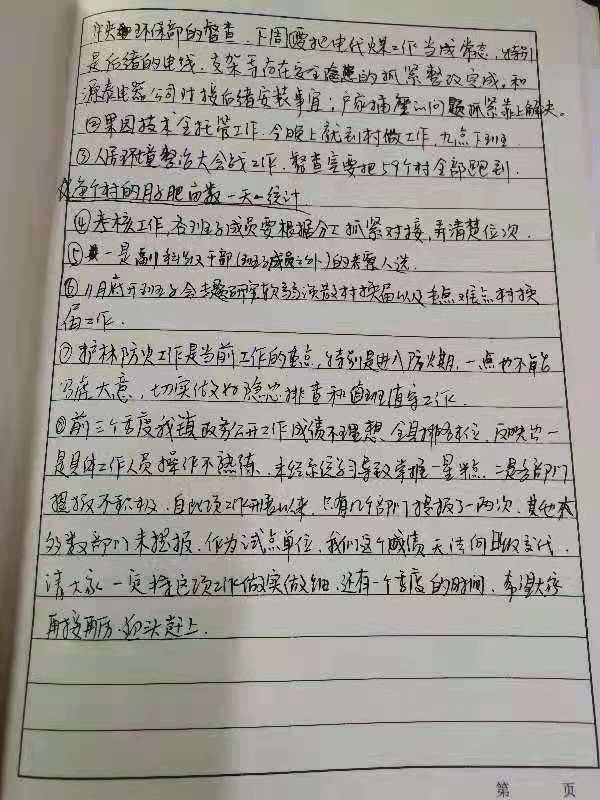 中央环保部的督查，下周①要把电代煤工作当成常态，特别
是后续的电线、支架等存在安全隐患的抓紧整改完成，和
源泰电器公司对接后续安装事宜；户家插 的问题抓紧靠上解决。
②果园技术全托管工作，今晚上就到村做工作，九点下班
③人居环境整治大会战工作，督查室要把59个村全部跑到，
每个村的月子肥亩数一天一统计
④考核工作，各班子成员要根据分工抓紧对接，弄清楚位次。
⑤ 一是副科级干部(班子成员之外)的考察人选。
⑥11月底开班子会专题研究软弱涣散村换届以及重点难点村换
届工作．
⑦护林防火工作是当前工作的重点，特别是进入防火期，一点也不能
马虎大意，切实做好隐患排查和值班值守工作．
⑧前三个季度我镇政务公开工作成绩不理想，全县排 位，反映出一
是具体工作人员操作不熟练，未经系统学习导致掌握一星半点，二是各部门
提报不积极，自此项工作开展以来，只有几个部门提报了一两次，其他大
多数部门未提报，作为试点单位，我们这个成绩无法向上级交代，
请大家一定将这项工作做实做细，还有一个季度的时间，希望大家
再接再厉、迎头赶上．
第 页